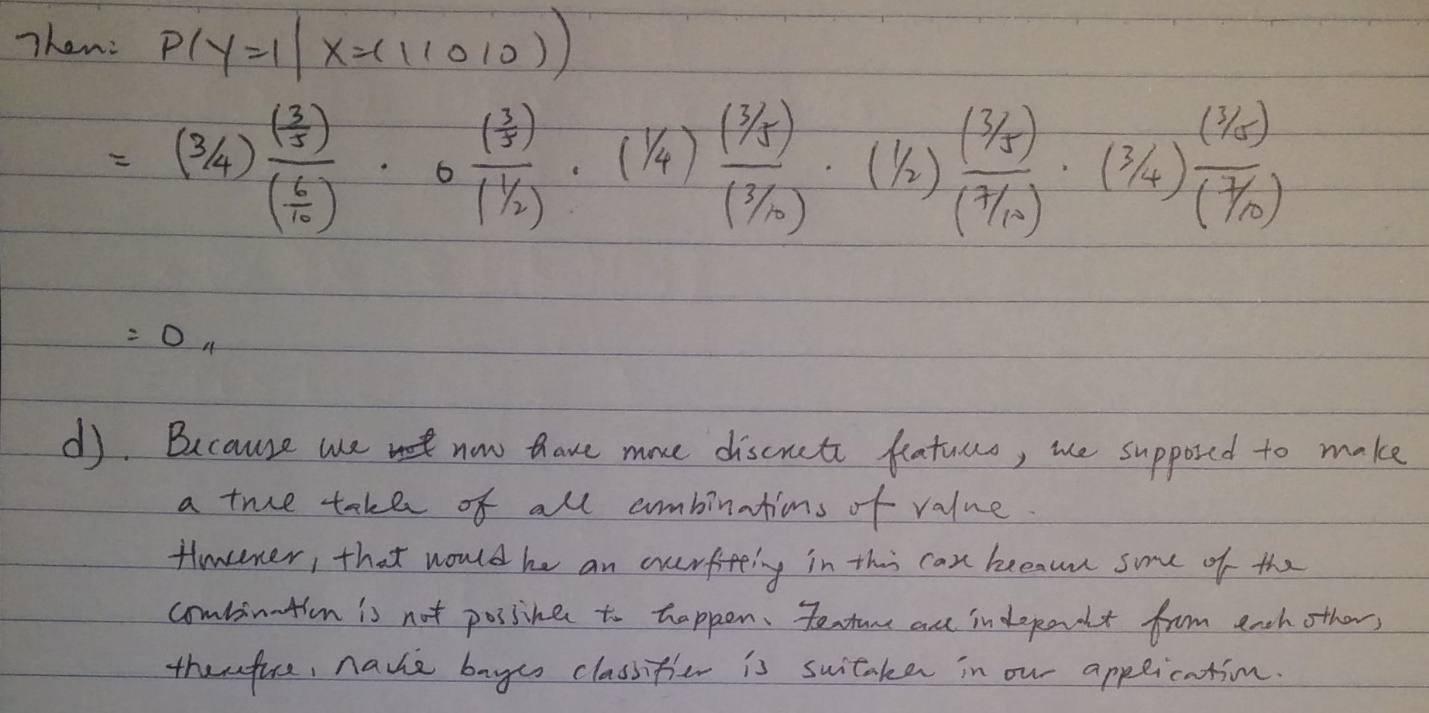 Then: P(Y=1 | X=(11010))
= (3/4) (3/5)/(6/10) · 0 (3/5)/(1/2) · (1/4) (3/5)/(3/10) · (1/2) (3/5)/(7/10) · (3/4) (3/5)/(7/10)
= 0 "
d). Because we not now have more discrete features, we supposed to make
a true table of all combinations of value.
However, that would be an overfitting in this case because some of the
combination is not possible to happen. Feature are independt from each other,
therefore, navie bayes classifier is suitaker in our application.